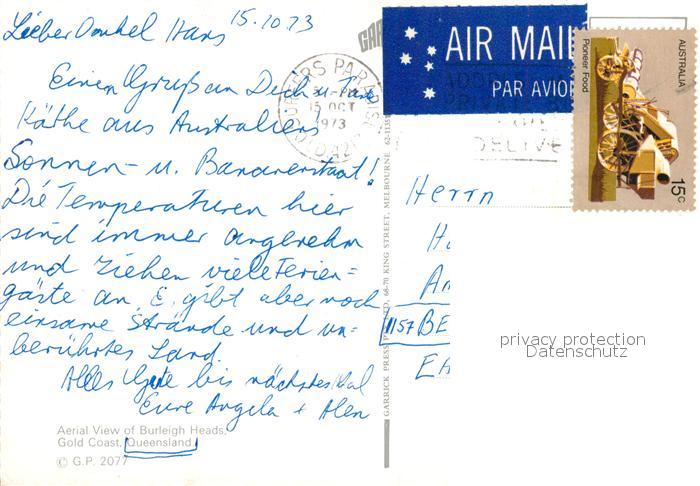 Lieber Onkel Hans 15.10.73
Einen Gruß an Dich u. Tante
Käthe aus Australiens
Sonnen- u. Bananenstaat!
Die Temperaturen hier
sind immer angenehm
und ziehen viele Ferien=
gäste an. Es gibt aber noch
einsame Strände und un-
berührtes Land.
Alles Gute bis nächstes Mal
Eure Angela + Alen
Aerial View of Burleigh Heads,
Gold Coast, Queensland.
© G.P. 2077
GARRICK PRESS 68-70 KING STREET, MELBOURNE
SURFERS PARADISE
15 OCT
1973
QLD
AIR MAIL
PAR AVION
DELIVE
AUSTRALIA
Pioneer Food
15c
Herrn
1157 BE
privacy protection
Datenschutz